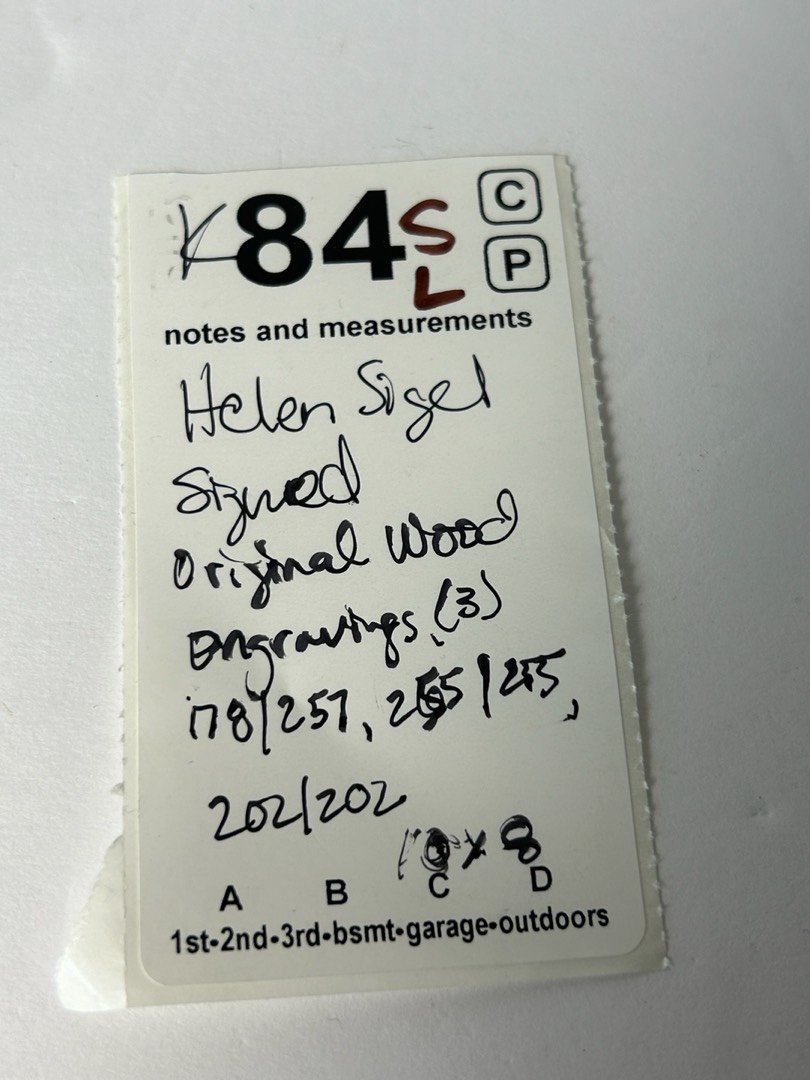 K84 S C
L P
notes and measurements
Helen Sigel
Signed
Original Wood
Engravings, (3)
178/257, 255/255,
202/202
10 x 8
A B C D
1st•2nd•3rd•bsmt•garage•outdoors